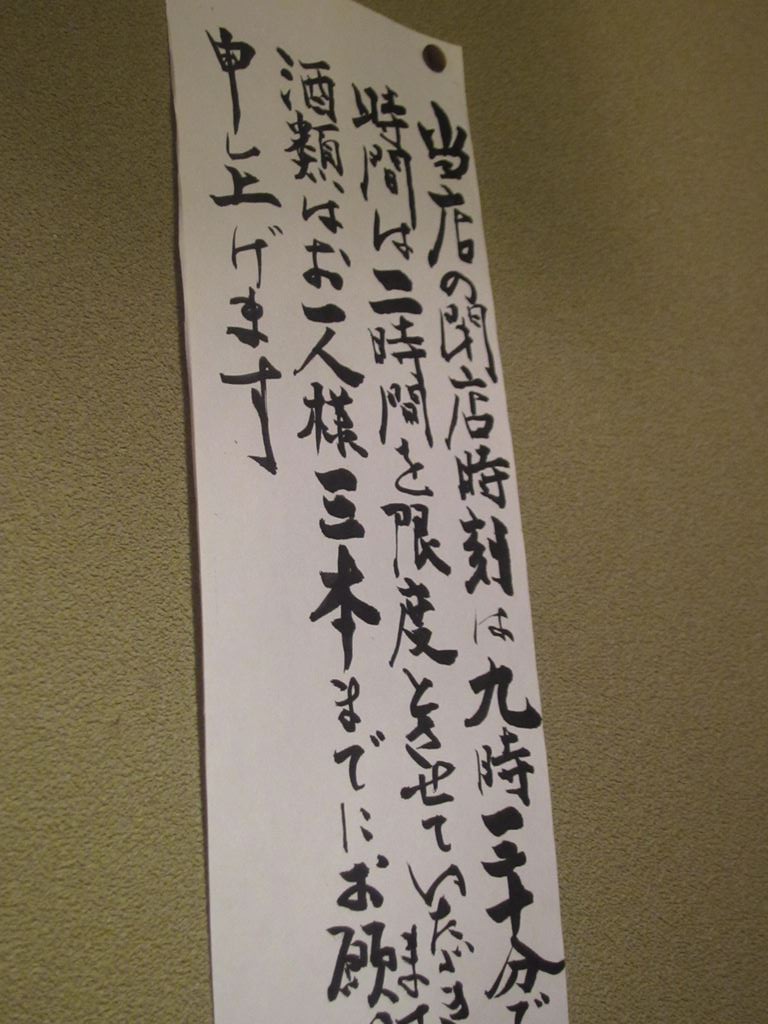 当店の閉店時刻は九時三十分で
時間は二時間を限度とさせていただき
酒類はお一人様三本までにお願
申し上げます